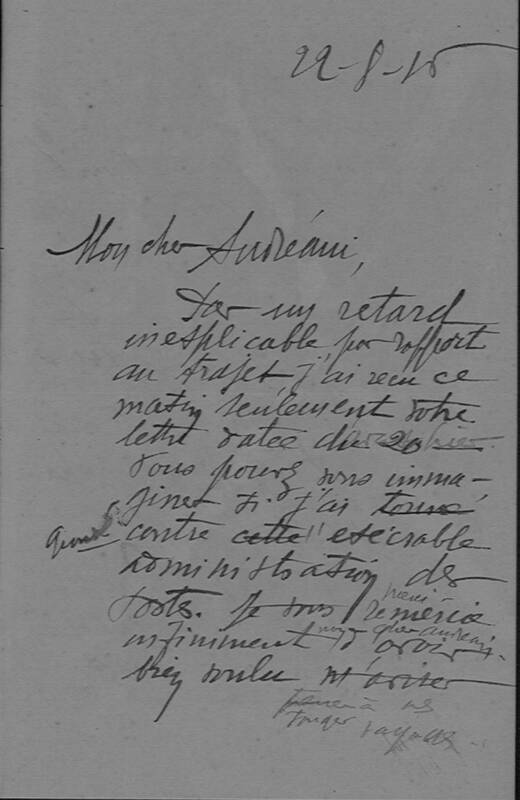 22-8-15
Mon cher Andréani,
Par un retard
inesplicable, par rapport
au trajet, j'ai recu ce
matin seulement votre
lettre datée du 20
Vous pourez vous imma-
giner si j'ai tonné
contre cette esécrable
administration des
postes. Je vous remercie
infiniment d'avoir
bien voulu m'aviser